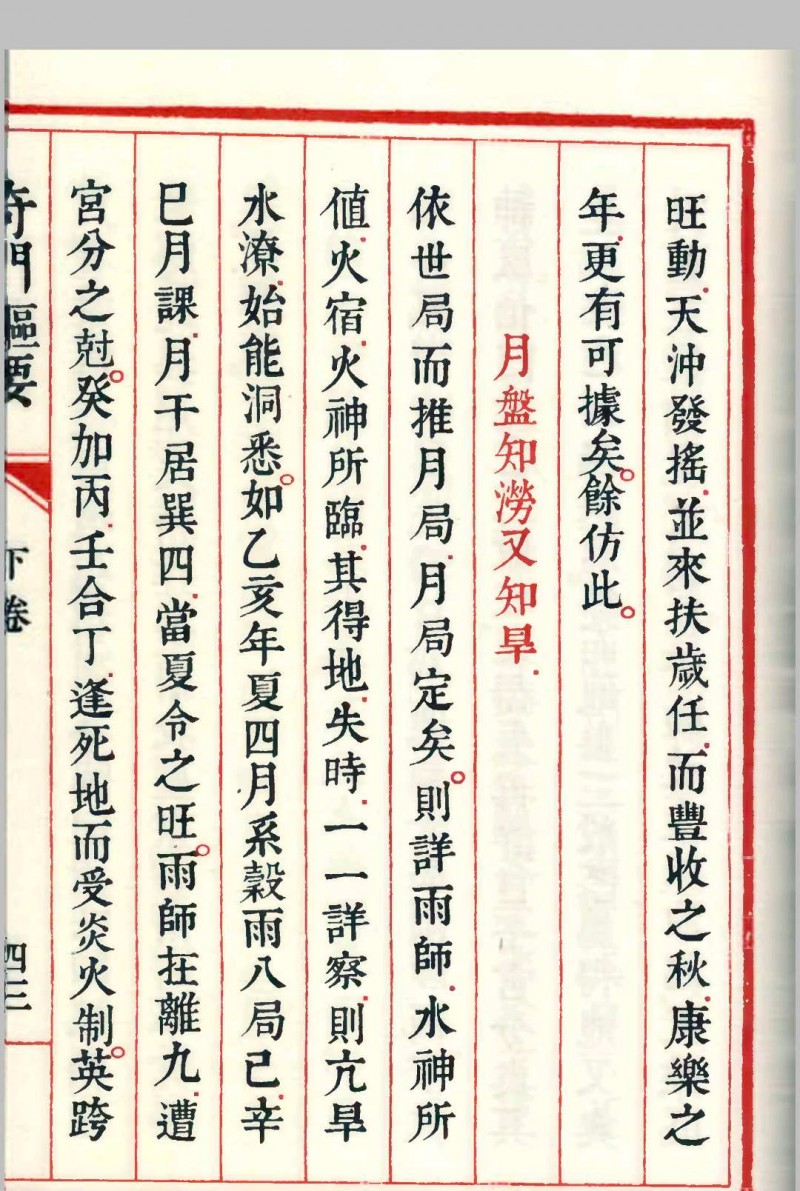 旺動.天沖發搖.並來扶歲任.而豐收之秋.康樂之
年.更有可據矣。餘仿此。
月盤知澇又知旱.
依世局而推月局.月局定矣。則詳雨師.水神所
值.火宿.火神所臨.其得地.失時.一一詳察.則亢旱
水潦.始能洞悉。如乙亥年夏四月系穀雨八局己.辛
巳月課.月干居巽四.當夏令之旺。雨師在離九.遭
宮分之尅。癸加丙.壬合丁.逢死地而受炎火制。英跨
奇門樞要
下卷
四三